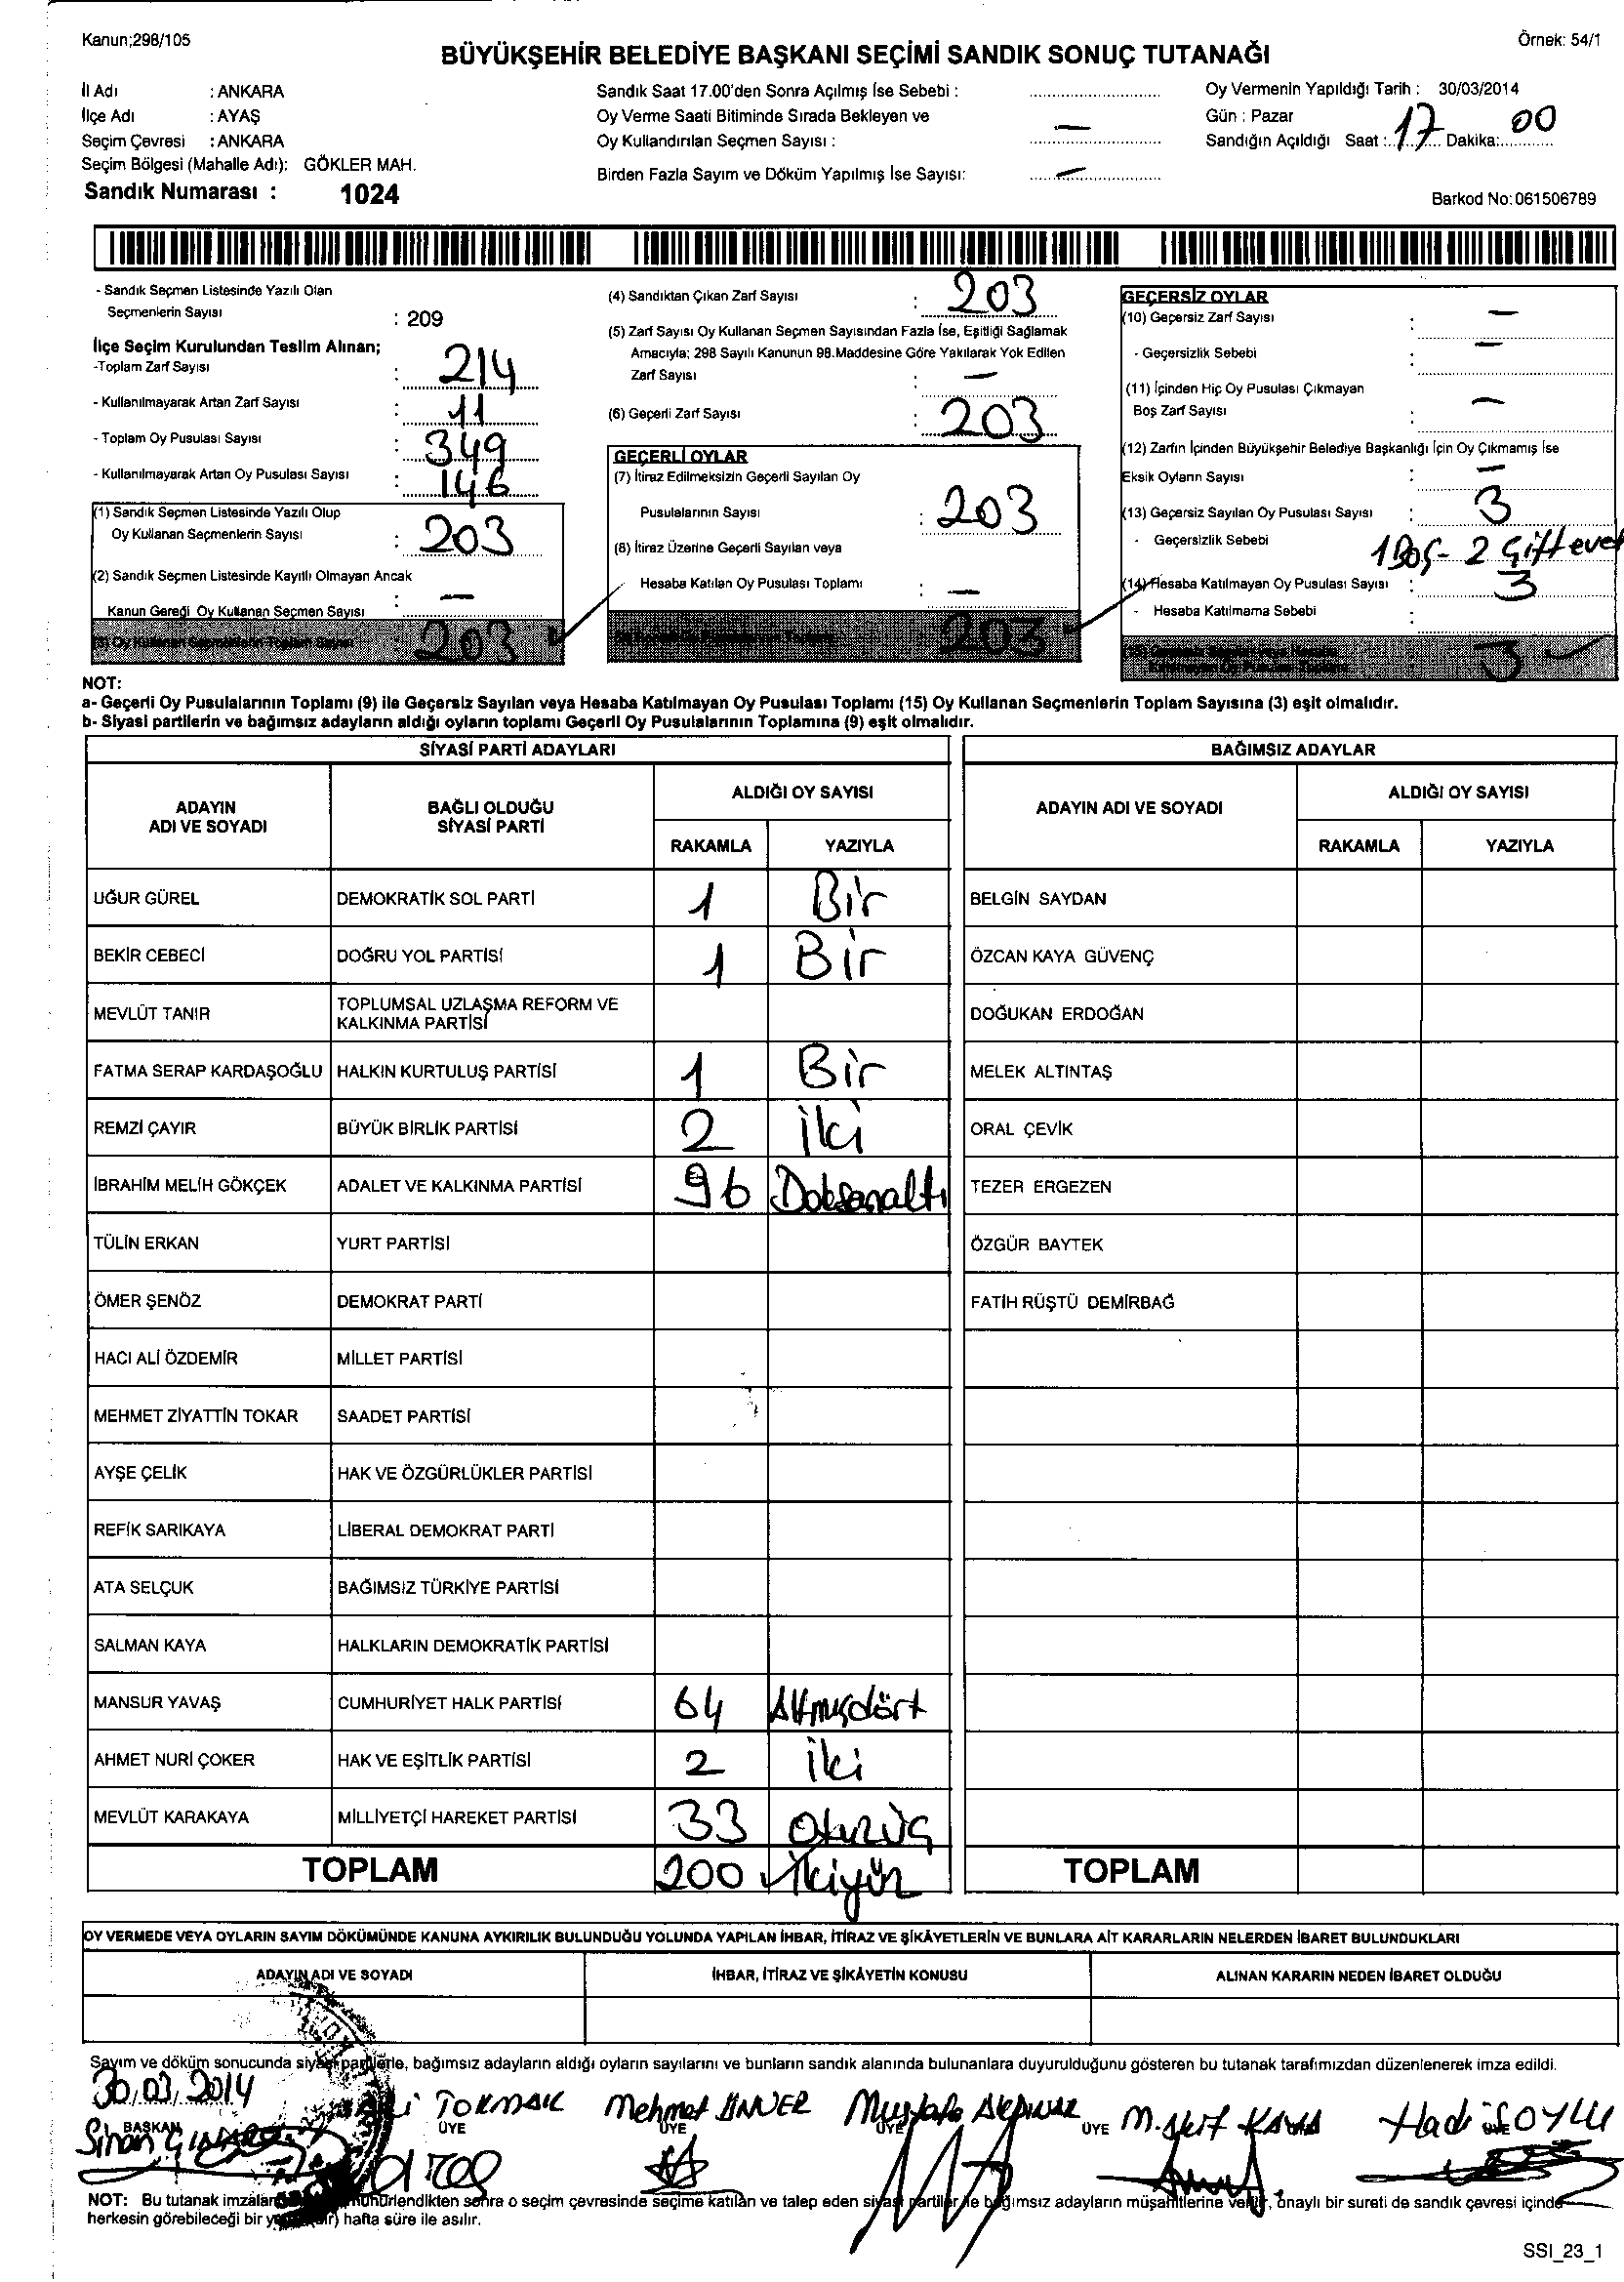 Kanun;298/105
Örnek: 54/1
BÜYÜKŞEHİR BELEDİYE BAŞKANI SEÇİMİ SANDIK SONUÇ TUTANAĞI
İl Adı : ANKARA
İlçe Adı : AYAŞ
Seçim Çevresi : ANKARA
Seçim Bölgesi (Mahalle Adı): GÖKLER MAH.
Sandık Numarası : 1024
Sandık Saat 17.00'den Sonra Açılmış İse Sebebi :
Oy Verme Saati Bitiminde Sırada Bekleyen ve
Oy Kullandırılan Seçmen Sayısı : —
Birden Fazla Sayım ve Döküm Yapılmış İse Sayısı: —
Oy Vermenin Yapıldığı Tarih : 30/03/2014
Gün : Pazar
Sandığın Açıldığı Saat : 17 Dakika: 00
Barkod No:061506789
- Sandık Seçmen Listesinde Yazılı Olan
Seçmenlerin Sayısı : 209
İlçe Seçim Kurulundan Teslim Alınan;
-Toplam Zarf Sayısı : 214
- Kullanılmayarak Artan Zarf Sayısı : 11
- Toplam Oy Pusulası Sayısı : 349
- Kullanılmayarak Artan Oy Pusulası Sayısı : 146
(1) Sandık Seçmen Listesinde Yazılı Olup
Oy Kullanan Seçmenlerin Sayısı : 203
(2) Sandık Seçmen Listesinde Kayıtlı Olmayan Ancak
Kanun Gereği Oy Kullanan Seçmen Sayısı : —
(3) Oy Kullanan Seçmenlerin Toplam Sayısı : 203
(4) Sandıktan Çıkan Zarf Sayısı : 203
(5) Zarf Sayısı Oy Kullanan Seçmen Sayısından Fazla İse, Eşitliği Sağlamak
Amacıyla; 298 Sayılı Kanunun 98.Maddesine Göre Yakılarak Yok Edilen
Zarf Sayısı : —
(6) Geçerli Zarf Sayısı : 203
GEÇERLİ OYLAR
(7) İtiraz Edilmeksizin Geçerli Sayılan Oy
Pusulalarının Sayısı : 203
(8) İtiraz Üzerine Geçerli Sayılan veya
Hesaba Katılan Oy Pusulası Toplamı : —
203
GEÇERSİZ OYLAR
(10) Geçersiz Zarf Sayısı : —
- Geçersizlik Sebebi : —
(11) İçinden Hiç Oy Pusulası Çıkmayan
Boş Zarf Sayısı : —
(12) Zarfın İçinden Büyükşehir Belediye Başkanlığı İçin Oy Çıkmamış İse
Eksik Oyların Sayısı : —
(13) Geçersiz Sayılan Oy Pusulası Sayısı : 3
- Geçersizlik Sebebi 1 Boş - 2 Çift evet
(14) Hesaba Katılmayan Oy Pusulası Sayısı : 3
- Hesaba Katılmama Sebebi :
3
NOT:
a- Geçerli Oy Pusulalarının Toplamı (9) ile Geçersiz Sayılan veya Hesaba Katılmayan Oy Pusulası Toplamı (15) Oy Kullanan Seçmenlerin Toplam Sayısına (3) eşit olmalıdır.
b- Siyasi partilerin ve bağımsız adayların aldığı oyların toplamı Geçerli Oy Pusulalarının Toplamına (9) eşit olmalıdır.
SİYASİ PARTİ ADAYLARI
ADAYIN ADI VE SOYADI BAĞLI OLDUĞU SİYASİ PARTİ ALDIĞI OY SAYISI
RAKAMLA YAZIYLA
UĞUR GÜREL DEMOKRATİK SOL PARTİ 1 Bir
BEKİR CEBECİ DOĞRU YOL PARTİSİ 1 Bir
MEVLÜT TANIR TOPLUMSAL UZLAŞMA REFORM VE
KALKINMA PARTİSİ
FATMA SERAP KARDAŞOĞLU HALKIN KURTULUŞ PARTİSİ 1 Bir
REMZİ ÇAYIR BÜYÜK BİRLİK PARTİSİ 2 iki
İBRAHİM MELİH GÖKÇEK ADALET VE KALKINMA PARTİSİ 96 Doksanaltı
TÜLİN ERKAN YURT PARTİSİ
ÖMER ŞENÖZ DEMOKRAT PARTİ
HACI ALİ ÖZDEMİR MİLLET PARTİSİ
MEHMET ZİYATTİN TOKAR SAADET PARTİSİ
AYŞE ÇELİK HAK VE ÖZGÜRLÜKLER PARTİSİ
REFİK SARIKAYA LİBERAL DEMOKRAT PARTİ
ATA SELÇUK BAĞIMSIZ TÜRKİYE PARTİSİ
SALMAN KAYA HALKLARIN DEMOKRATİK PARTİSİ
MANSUR YAVAŞ CUMHURİYET HALK PARTİSİ 64 Altmışdört
AHMET NURİ ÇOKER HAK VE EŞİTLİK PARTİSİ 2 iki
MEVLÜT KARAKAYA MİLLİYETÇİ HAREKET PARTİSİ 33 Otuzüç
TOPLAM 200 İkiyüz
BAĞIMSIZ ADAYLAR
ADAYIN ADI VE SOYADI ALDIĞI OY SAYISI
RAKAMLA YAZIYLA
BELGİN SAYDAN
ÖZCAN KAYA GÜVENÇ
DOĞUKAN ERDOĞAN
MELEK ALTINTAŞ
ORAL ÇEVİK
TEZER ERGEZEN
ÖZGÜR BAYTEK
FATİH RÜŞTÜ DEMİRBAĞ
TOPLAM
OY VERMEDE VEYA OYLARIN SAYIM DÖKÜMÜNDE KANUNA AYKIRILIK BULUNDUĞU YOLUNDA YAPILAN İHBAR, İTİRAZ VE ŞİKÂYETLERİN VE BUNLARA AİT KARARLARIN NELERDEN İBARET BULUNDUKLARI
ADAYIN ADI VE SOYADI İHBAR, İTİRAZ VE ŞİKÂYETİN KONUSU ALINAN KARARIN NEDEN İBARET OLDUĞU
Sayım ve döküm sonucunda siyasi partilerle, bağımsız adayların aldığı oyların sayılarını ve bunların sandık alanında bulunanlara duyurulduğunu gösteren bu tutanak tarafımızdan düzenlenerek imza edildi.
30.03.2014
Sinan TOKMAK Mehmet ÜNVER Mustafa Akpınar M. Akif KAYA Hadi SOYLU
BAŞKAN ÜYE ÜYE ÜYE ÜYE
NOT: Bu tutanak mühürlendikten sonra o seçim çevresinde seçime katılan ve talep eden siyasi partiler ile bağımsız adayların müşahitlerine verilir, onaylı bir sureti de sandık çevresi içinde
herkesin görebileceği bir hafta süre ile asılır.
SSI_23_1